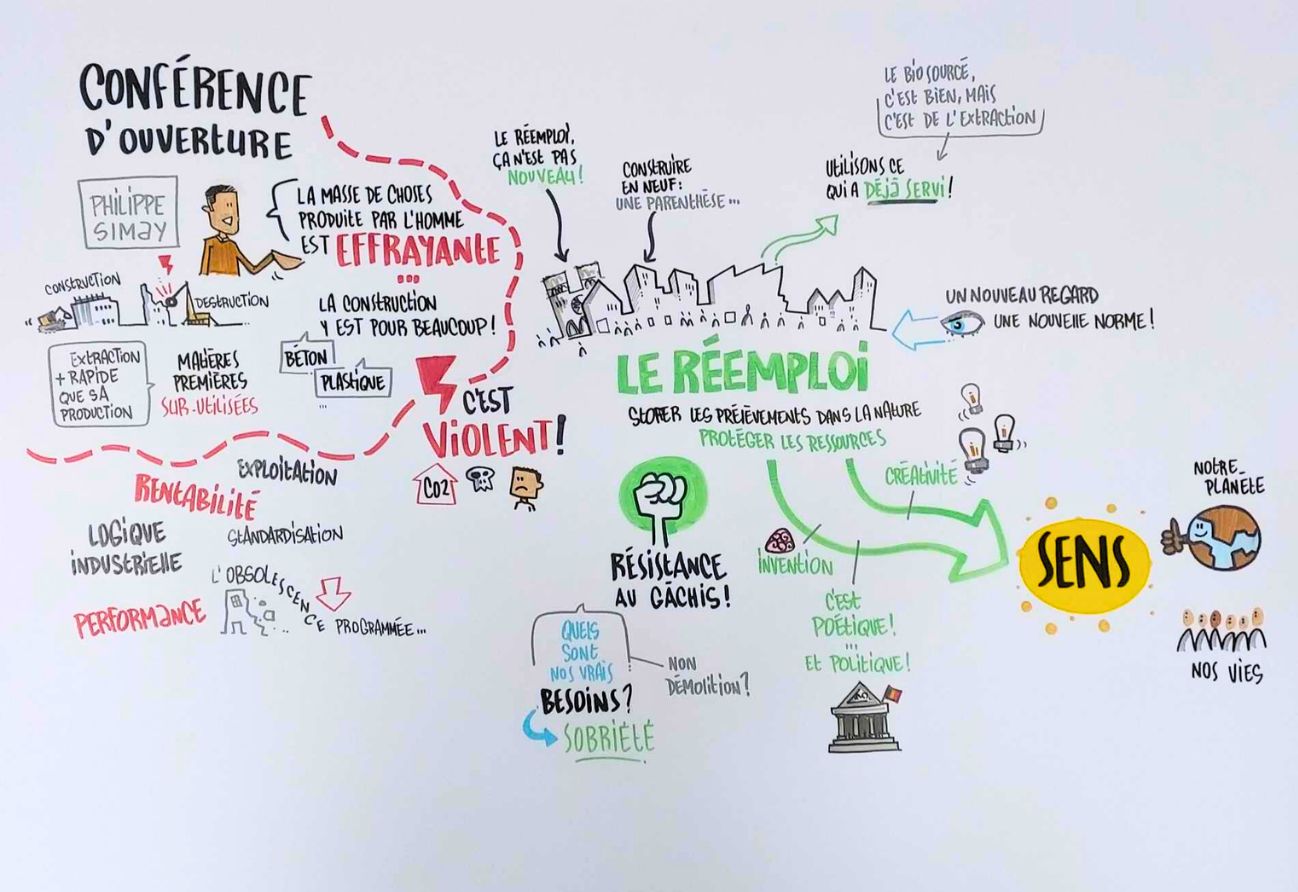 CONFÉRENCE
D'OUVERTURE
PHILIPPE
SIMAY
LA MASSE DE CHOSES
PRODUITE PAR L'HOMME
EST EFFRAYANTE
...
LA CONSTRUCTION
Y EST POUR BEAUCOUP!
CONSTRUCTION
DESTRUCTION
EXTRACTION
+ RAPIDE
QUE SA
PRODUCTION
MATIÈRES
PREMIÈRES
SUR-UTILISÉES
BÉTON
PLASTIQUE
...
C'EST
VIOLENT!
CO2
EXPLOITATION
RENTABILITÉ
LOGIQUE
INDUSTRIELLE
STANDARDISATION
PERFORMANCE
L'OBSOLESCENCE PROGRAMMÉE...
LE RÉEMPLOI,
ÇA N'EST PAS
NOUVEAU!
CONSTRUIRE
EN NEUF:
UNE PARENTHÈSE...
LE BIOSOURCÉ,
C'EST BIEN, MAIS
C'EST DE L'EXTRACTION
UTILISONS CE
QUI A DÉJÀ SERVI!
UN NOUVEAU REGARD
UNE NOUVELLE NORME!
LE RÉEMPLOI
STOPER LES PRÉLÈVEMENTS DANS LA NATURE
PROTÉGER LES RESSOURCES
CRÉATIVITÉ
INVENTION
C'EST
POÉTIQUE!
...
ET POLITIQUE!
RÉSISTANCE
AU GÂCHIS!
QUELS
SONT
NOS VRAIS
BESOINS?
SOBRIÉTÉ
NON
DÉMOLITION?
SENS
NOTRE
PLANÈTE
NOS VIES